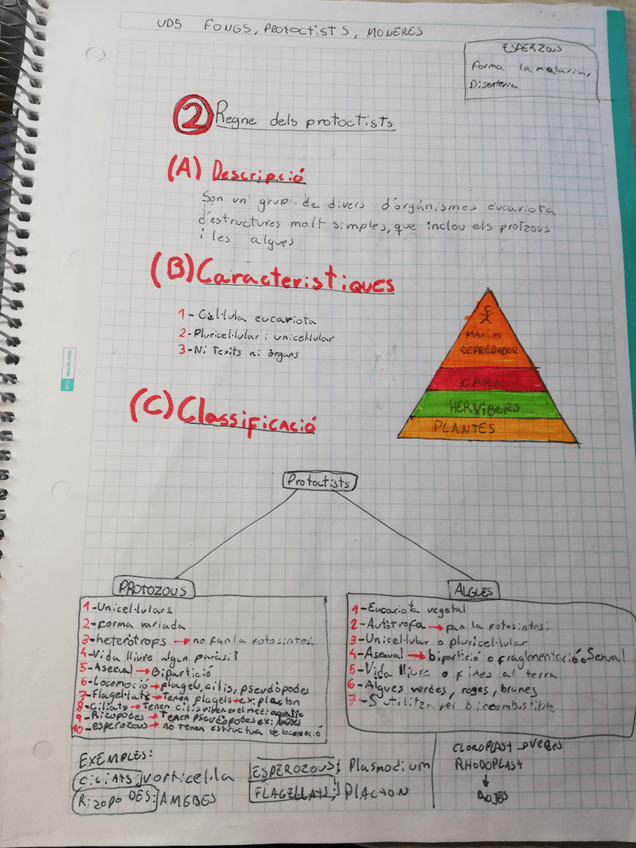 UD5 FONGS, PROTOCTISTS, MONERES
ESPERZOUS
Forma la malaria,
Disenteria
2 Regne dels protoctists
(A) Descripció
Son un grup de divers d'organismes eucariota
d'estructures molt simples, que inclou els protzous
i les algues
(B) Característiques
1- Cèl·lula eucariota
2- Pluricel·lular i unicel·lular
3- Ni texits ni òrgans
MÀXIM
DEPREDADOR
CARN
HERVÍBORS
PLANTES
(C) Classificació
Protoctists
PROTOZOUS
1- Unicel·lulars
2- forma variada
3- heteròtrops → no fan la fotosintesi
4- Vida lliure algun paràsit
5- Asexual → Bipartició
6- Locomoció → flagels, cilis, pseudòpodes
7- Flagel·lats → Tenen flagels ex: placton
8- Ciliats → Tenen cilis viden en el medi aquatic
9- Rizopodes → Tenen pseudòpodes ex: Amebes
10- esperozous → no tenen estructura de locomoció
ALGUES
1- Eucariota vegetal
2- Autòtrofa → fan la fotosintesi
3- Unicel·lular o pluricel·lular
4- Asexual → bipartició o fragmentació o Sexual
5- Vida lliure o fines al terra
6- Algues verdes, roges, brunes
7- S'utilitza el biocombustible
EXEMPLES:
CILIATS: vorticel·la
RIZOPODES: AMEBES
ESPEROZOUS: Plasmodium
FLAGEL·LATS: PLACTON
CLOROPLAST VERDES
RHODOPLAST
↓
ROJES